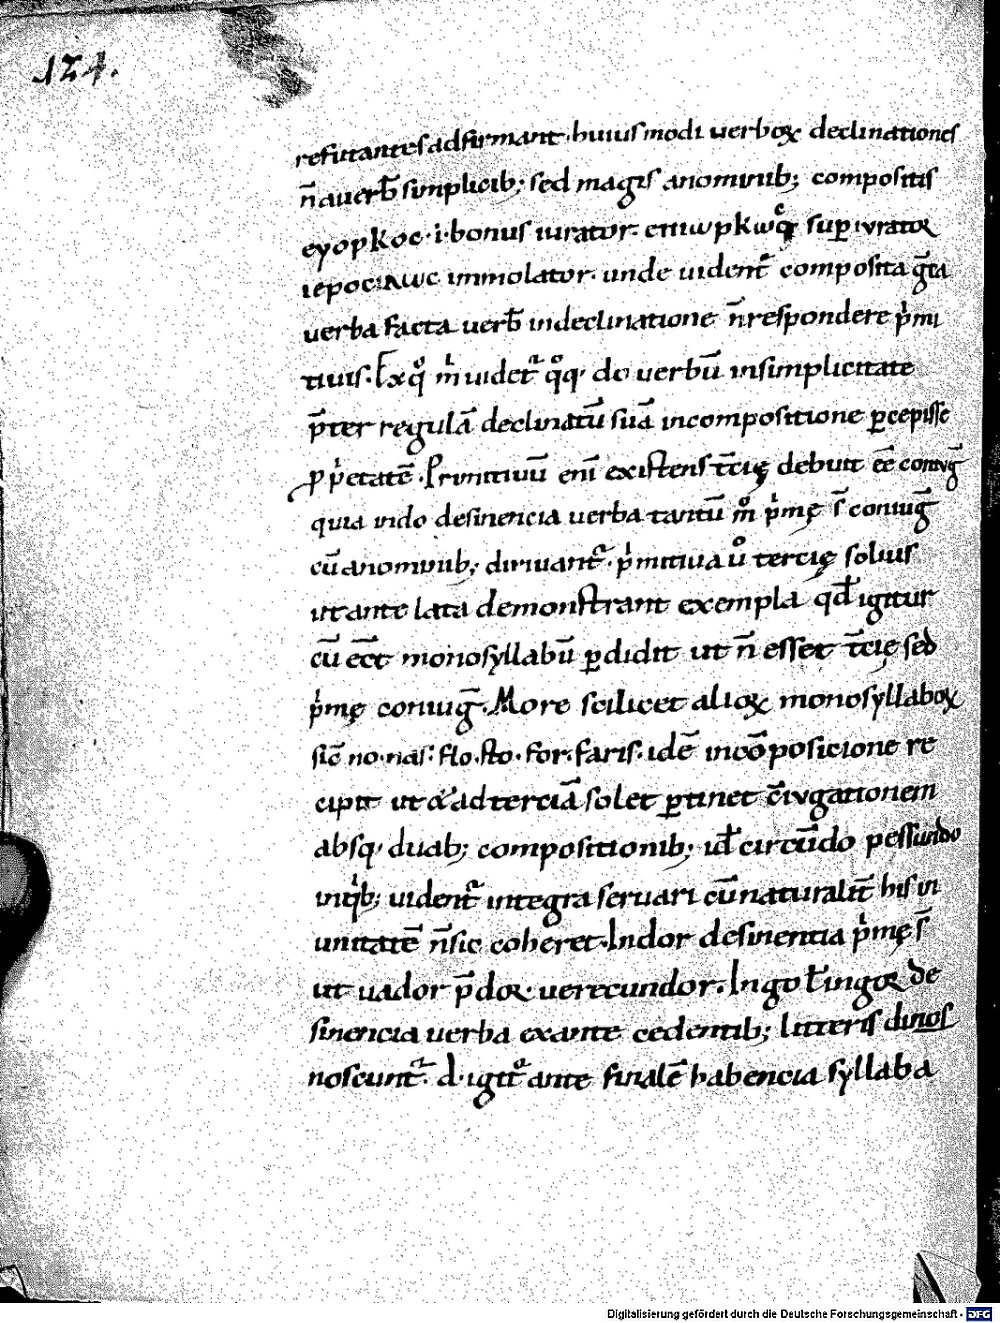 124.
refutantes adfirmant. huiusmodi uerboꝝ declinationes
n̄ a uerb̄ simplicib; sed magis a nominib; compositis
εγορκος .i. bonus iurator. επιωρκως suꝑiurator
ιεροσιλως immolator. unde uident᷑ composita
uerba facta uerb̄ in declinatione n̄ respondere pⁱmi
tiuis. Exqͦ mⁱ uidet᷑ qͦq; do uerbū in simplicitate
p̄ter regulā declinatū suā in compositione ꝑcepisse
ꝓpⁱetatē. Primitiuū enī existens t̄cię debuit eē coniuḡ
quia in do desinencia uerba tantū mͦ pⁱmę s̄ coniuḡ
cū a nominib; diriuant᷑. pⁱmitiua uͦ tercię solius
ut ante lata demonstrant exempla qd̄ igitur
cū eēt monosyllabū ꝑdidit ut n̄ esset t̄cię sed
pⁱmę coniuḡ. More scilicet alioꝝ monosyllaboꝝ
sic̄ no. nas. flo. sto. for. faris. idē in cōposicione re
cipit ut & ad terciā solet ꝑtinet c̄iugationem
absq; duab; compositionib; ut̄ circūdo pessundo
in qⁱb; uident᷑ integra seruari cū naturalit̄ his in
unitatē n̄ sic coheret. In dor desinentia pⁱmę s̄
ut uador p̄dor uerecundor. In go ł in gor de
sinencia uerba ex ante cedentib; litteris dinos
noscunt᷑. d. igit᷑ ante finalē habencia syllaba
Digitalisierung gefördert durch die Deutsche Forschungsgemeinschaft - DFG